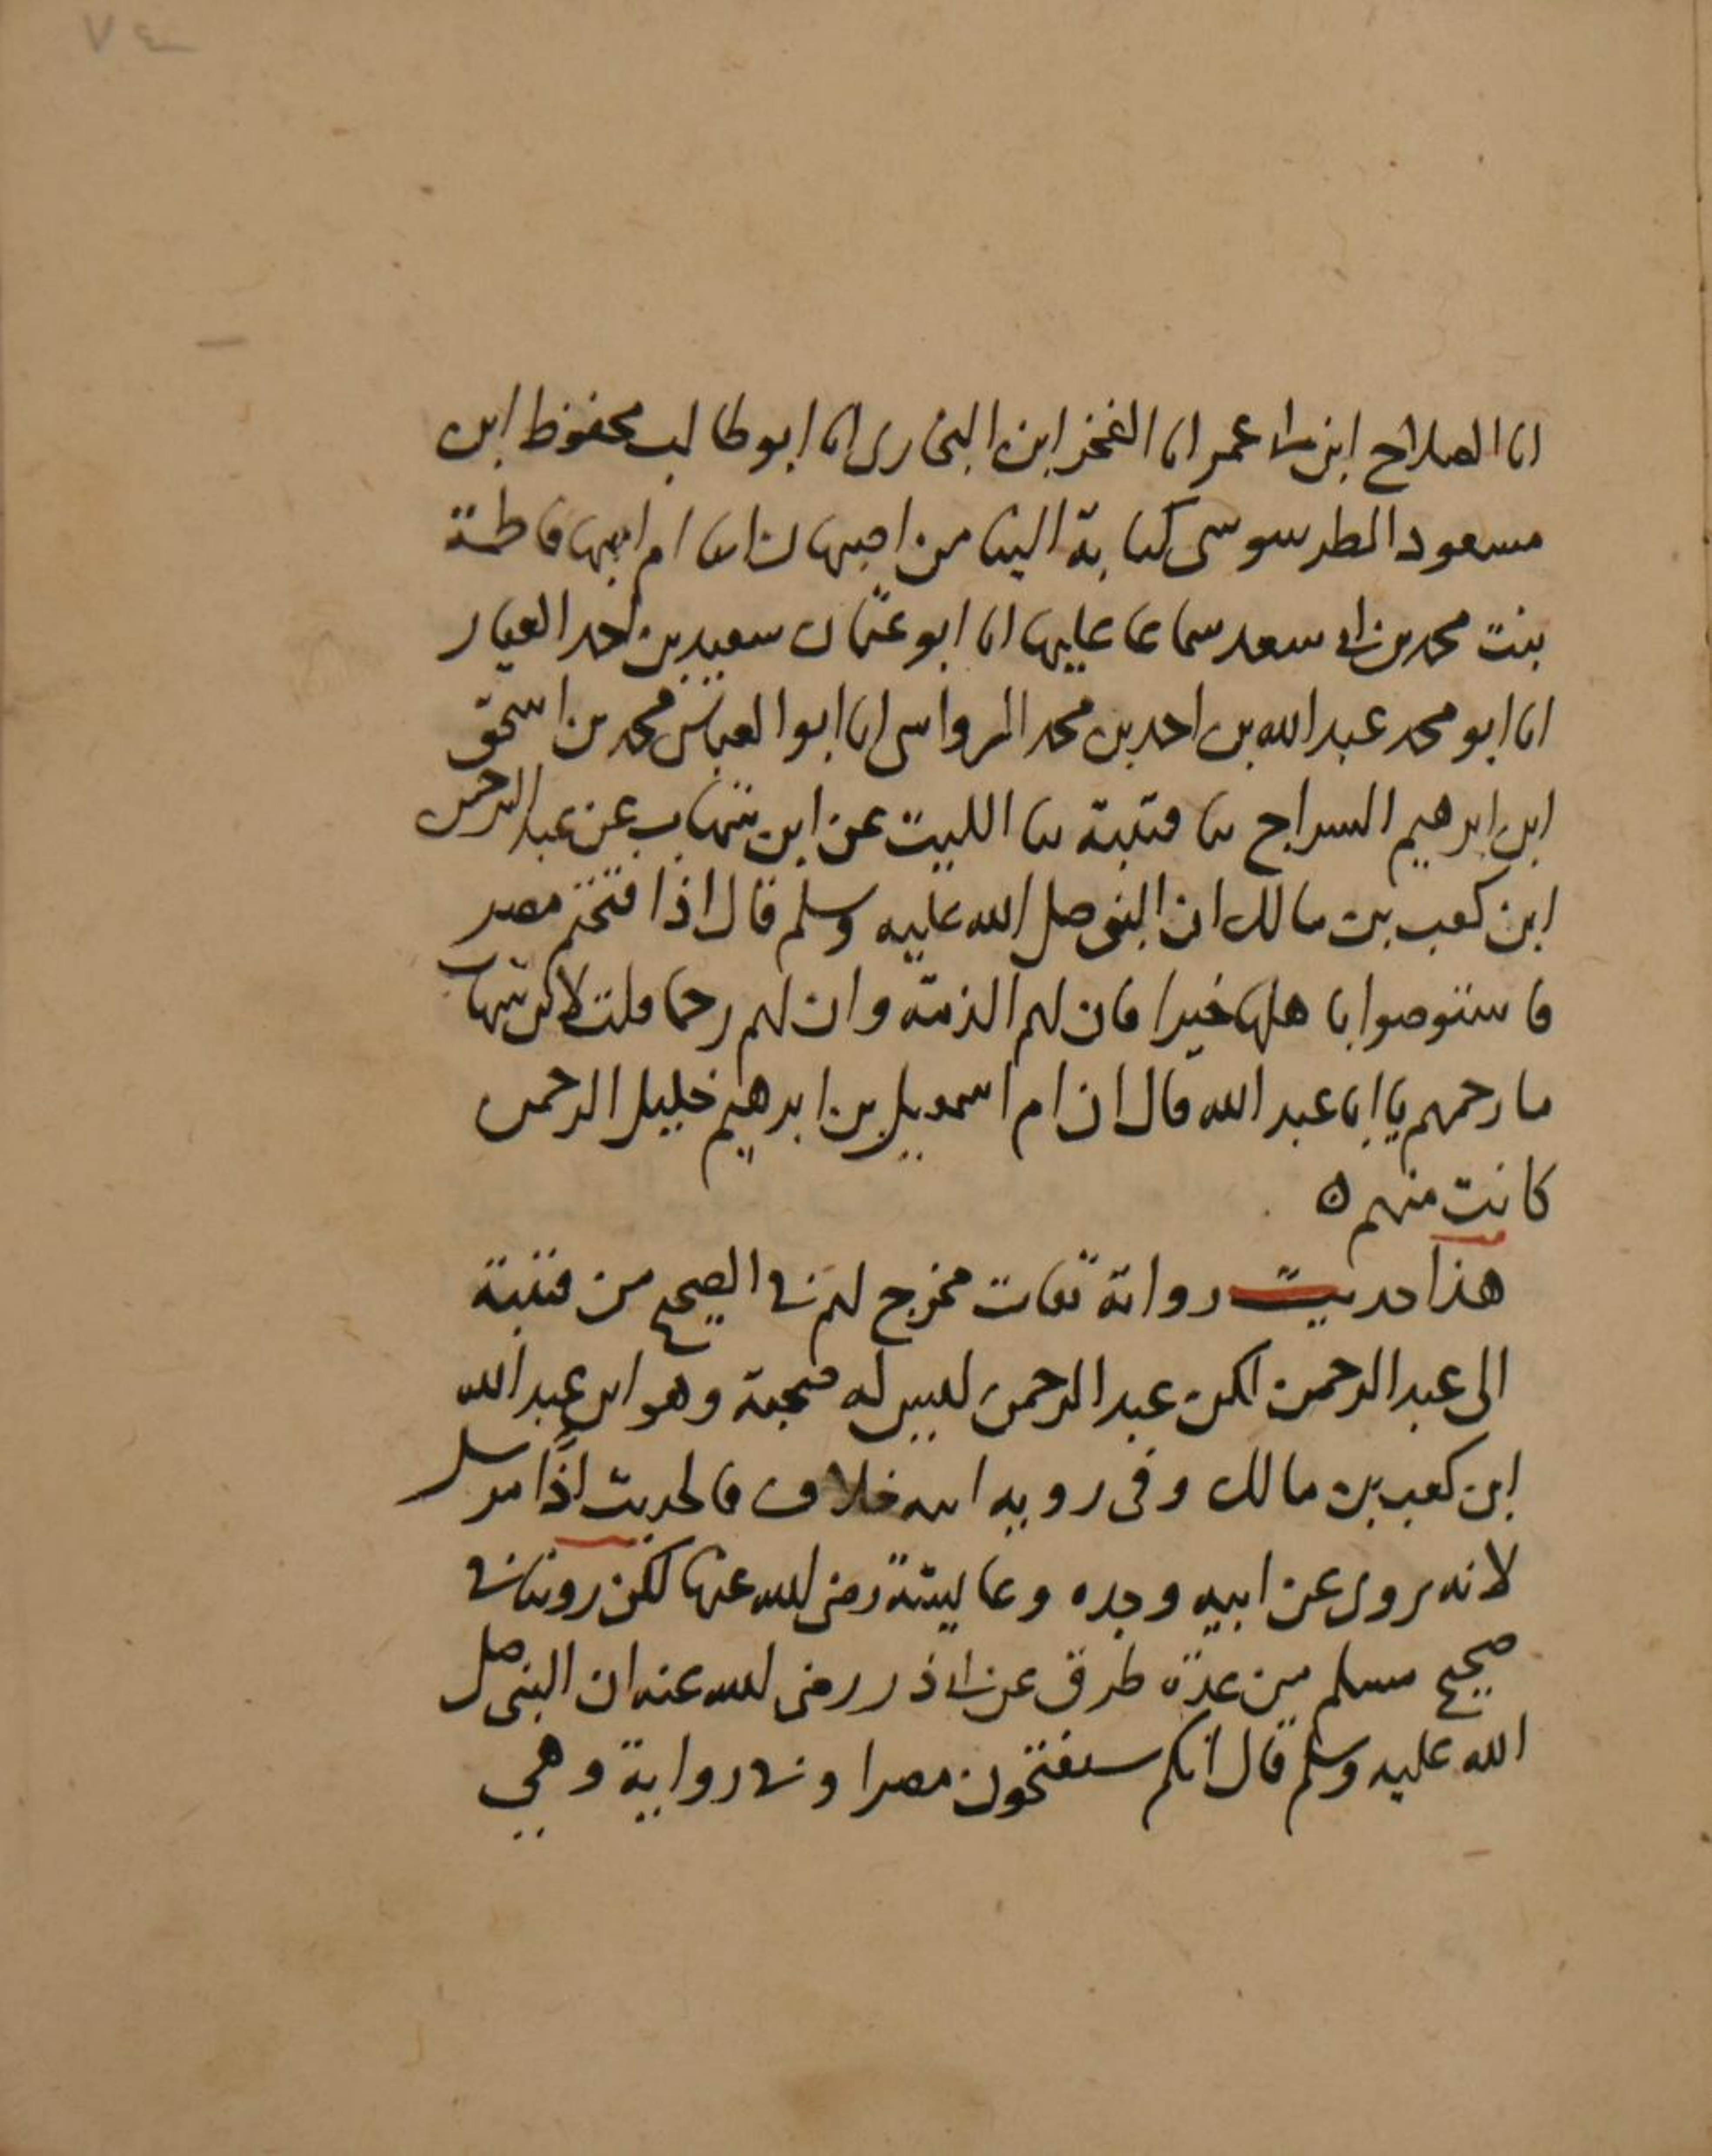 ٧٤
انا الصلاح ابن ابى عمر انا الفخر ابن البخارى انا ابو طالب محفوظ ابن
مسعود الطرسوسى كتابة الينا من اصبهان انا ام ابيها فاطمة
بنت محمد بن ابى سعد سماعا عليها انا ابو عثمان سعيد بن احمد العيار
انا ابو محمد عبد الله بن احمد بن محمد الرواسى انا ابو العباس محمد بن اسحق
ابن ابرهيم السراج ثنا قتيبة ثنا الليث عن ابن شهاب عن عبد الرحمن
ابن كعب بن مالك ان النبى صلى الله عليه وسلم قال اذا فتحتم مصر
فاستوصوا باهلها خيرا فان لهم الذمة وان لهم رحما قلت لابن شهاب
ما رحمهم يا ابا عبد الله قال ان ام اسمعيل بن ابرهيم خليل الرحمن
كانت منهم ه
هذا حديث رواته ثقات مخرج لهم فى الصحيح من قتيبة
الى عبد الرحمن لكن عبد الرحمن ليس له صحبة وهو ابن عبد الله
ابن كعب بن مالك وفى رويه ابيه خلاف فالحديث اذًا مرسل
لانه يروى عن ابيه وجده وعايشة رضى الله عنها لكن روينا فى
صحيح مسلم من عدة طرق عن ابى ذر رضى الله عنه ان النبى صلى
الله عليه وسلم قال انكم ستفتحون مصرا وفى رواية وهي